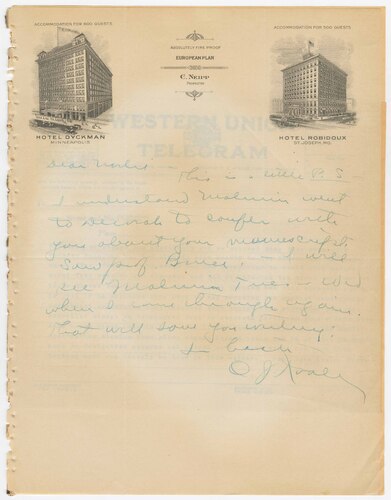 ACCOMMODATION FOR 500 GUESTS
ACCOMMODATION FOR 500 GUESTS
ABSOLUTELY FIRE PROOF
EUROPEAN PLAN
C. NEIPP
PROPRIETOR
HOTEL DYCKMAN
MINNEAPOLIS
HOTEL ROBIDOUX
ST. JOSEPH, MO.
WESTERN UNION
TELEGRAM
Dear
This is a little P. S. -
I understand went
to to confer with
you about your manuscript.
Saw prof. - I will
see Tues - Wed
when I come through again.
That will save you writing.
O J